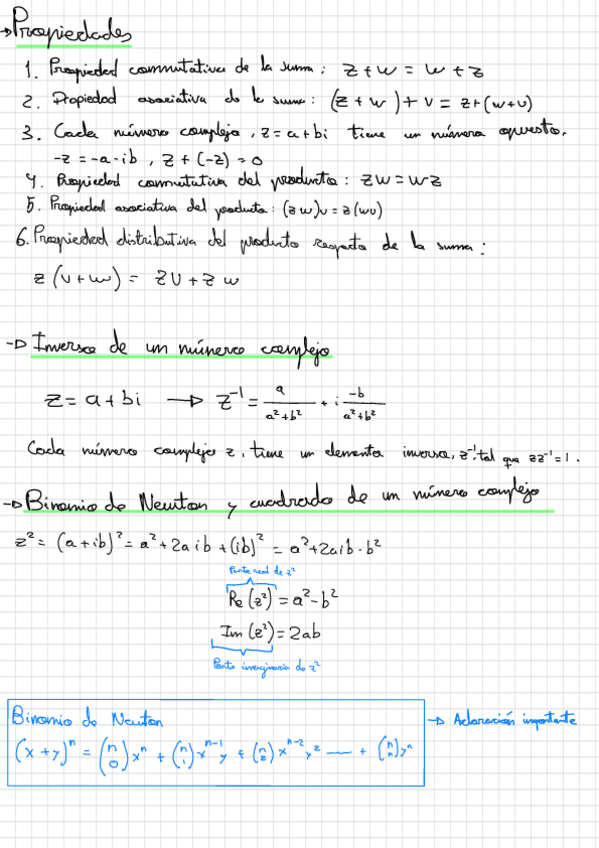 →Propiedades
1. Propiedad conmutativa de la suma: z+w = w+z
2. Propiedad asociativa de la suma: (z+w)+v = z+(w+v)
3. Cada número complejo, z=a+bi tiene un número opuesto,
-z=-a-ib, z+(-z)=0
4. Propiedad conmutativa del producto: zw=wz
5. Propiedad asociativa del producto: (zw)v=z(wv)
6. Propiedad distributiva del producto respecto de la suma:
z(v+w) = zv+zw
→ Inversa de un número complejo
z=a+bi → z⁻¹ = a/(a²+b²) + i -b/(a²+b²)
Cada número complejo z, tiene un elemento inverso, z⁻¹, tal que zz⁻¹=1.
→ Binomio de Newton y cuadrado de un número complejo
z² = (a+ib)² = a²+2aib+(ib)² = a²+2aib-b²
Parte real de z²
Re(z²) = a²-b²
Im(z²) = 2ab
Parte imaginaria de z²
Binomio de Newton → Aclaración importante
(x+y)ⁿ = (n 0)xⁿ + (n 1)xⁿ⁻¹y + (n 2)xⁿ⁻²y² — + (n n)yⁿ